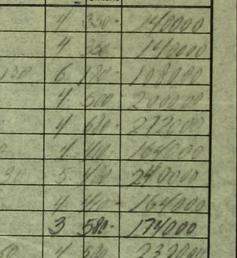 4 350- 140000
4 350 140000
6 180- 108000
4 500 200000
4 680- 272000
4 410- 164000
5 480 240000
4 410- 164000
3 580- 174000
4 580 232000